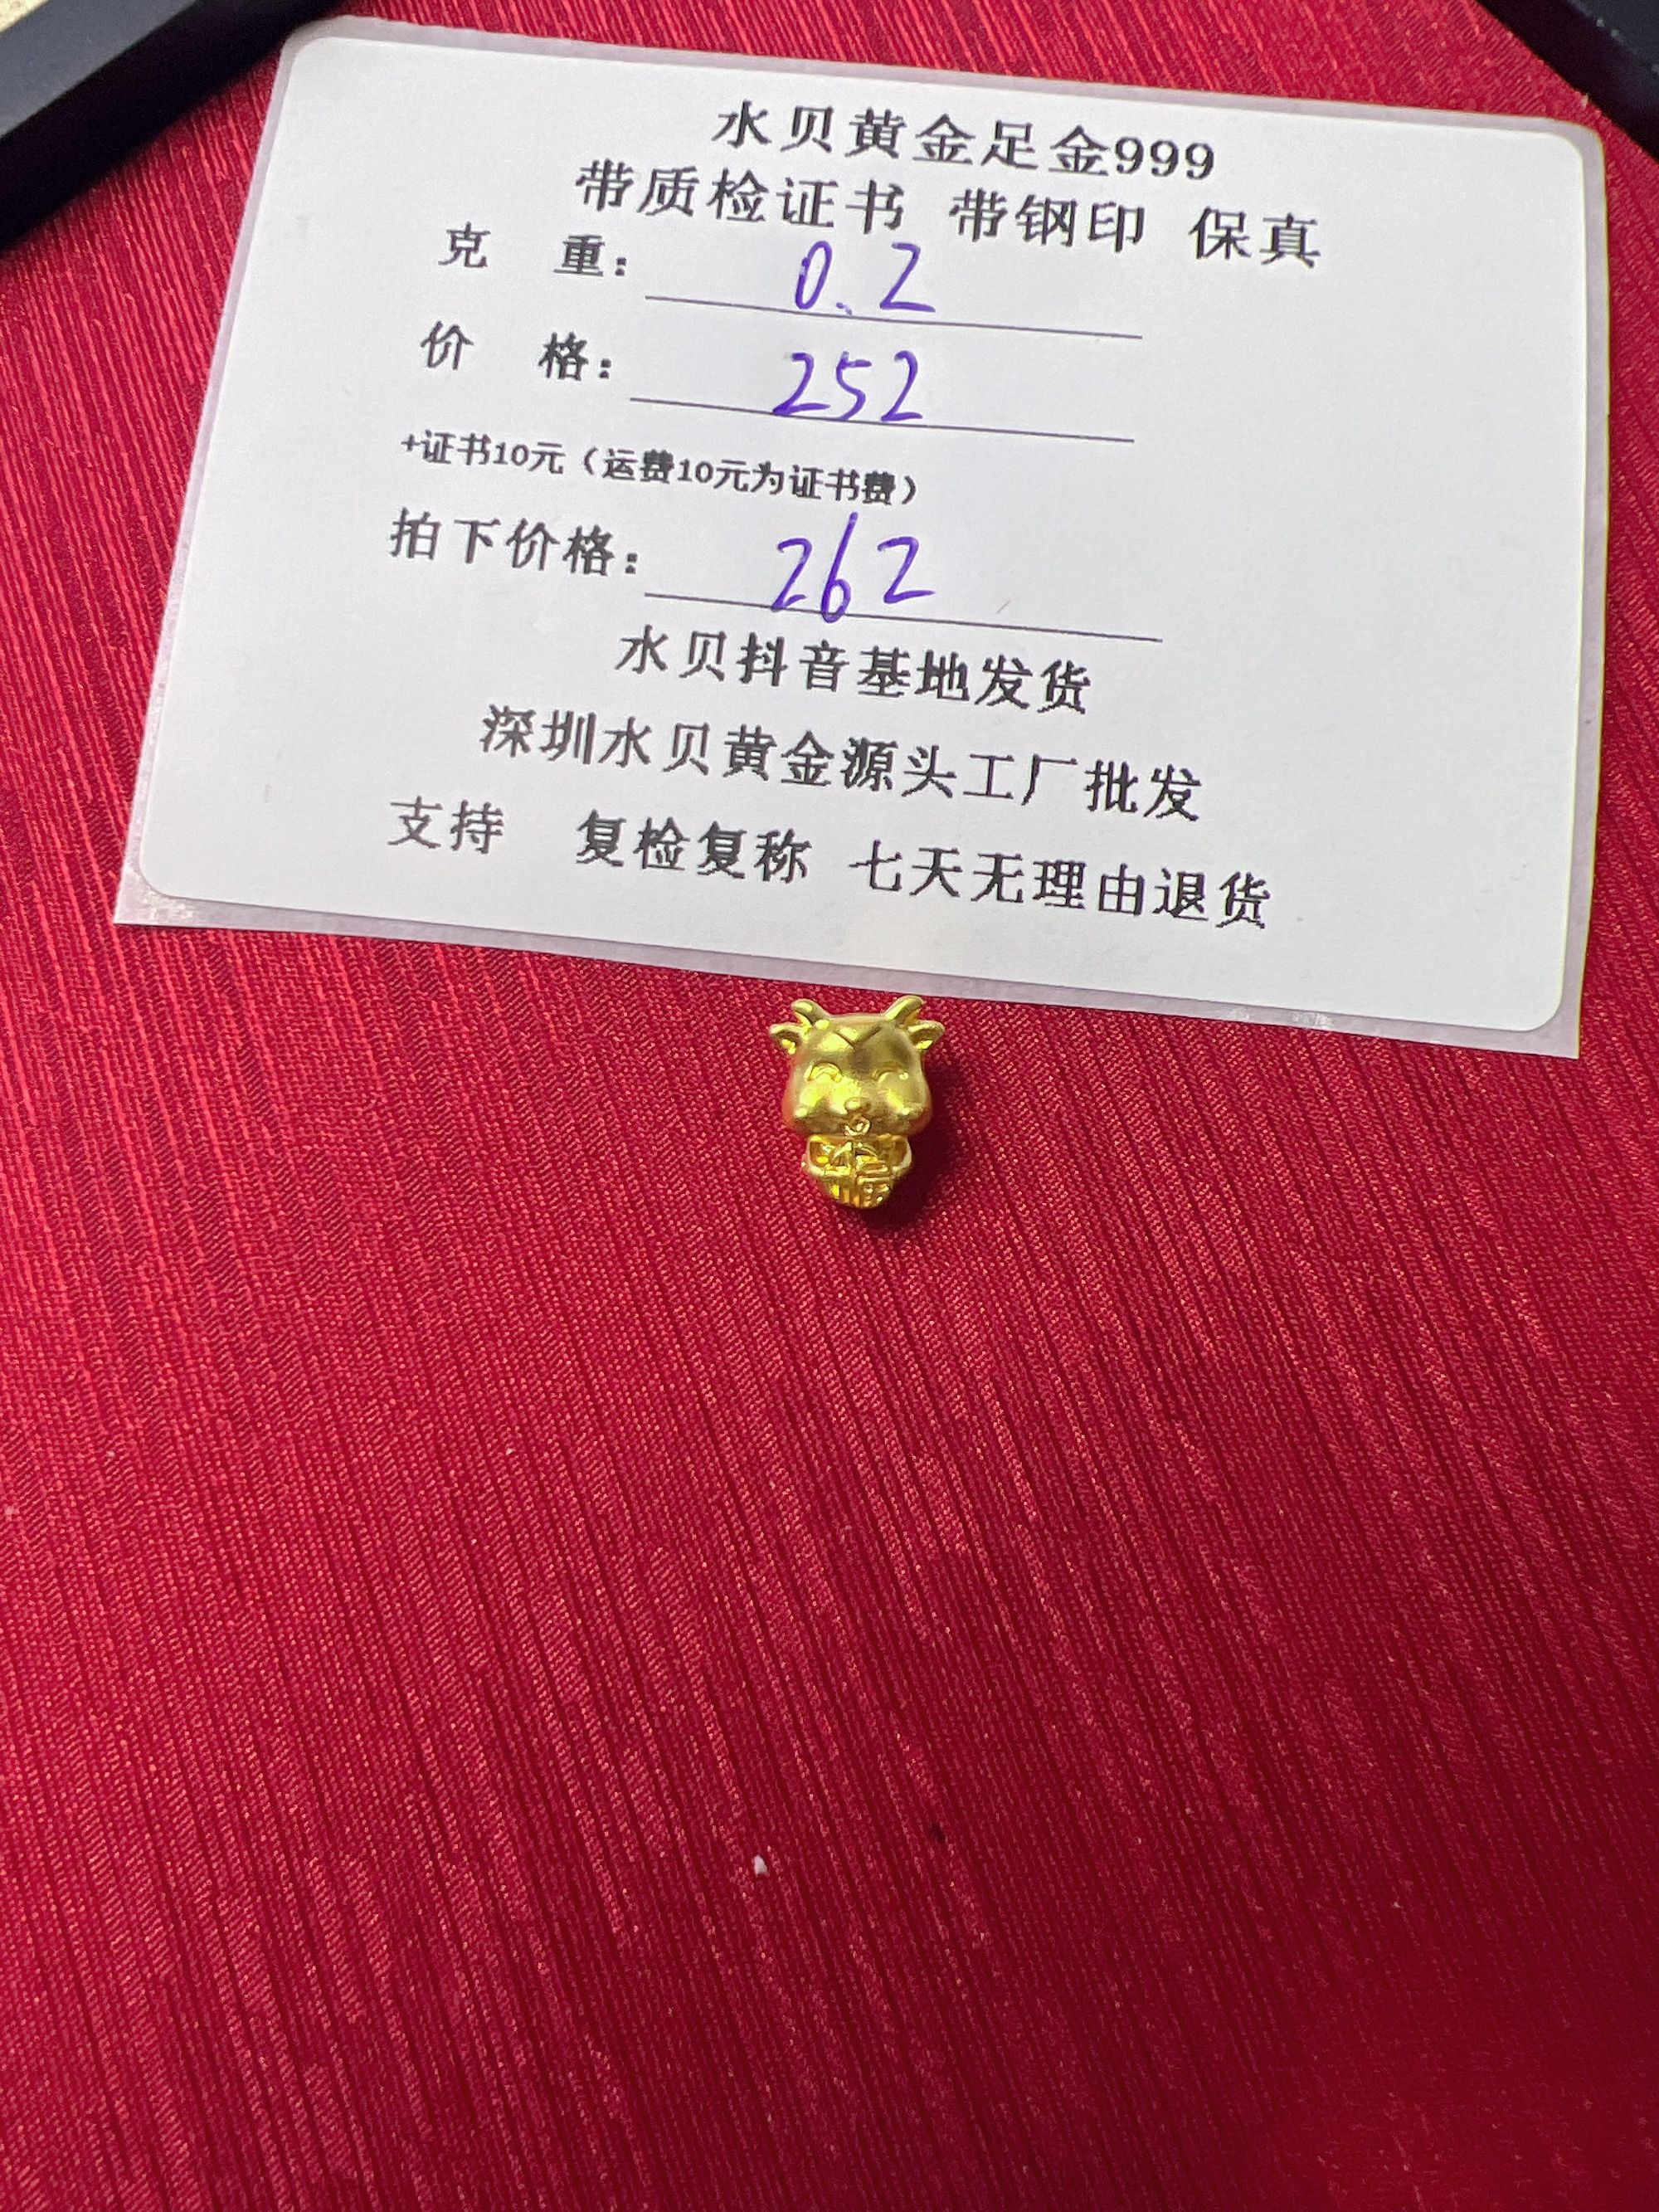 水贝黄金足金999
带质检证书 带钢印 保真
克 重： 0.2
价 格： 252
+证书10元（运费10元为证书费）
拍下价格： 262
水贝抖音基地发货
深圳水贝黄金源头工厂批发
支持 复检复称 七天无理由退货
福